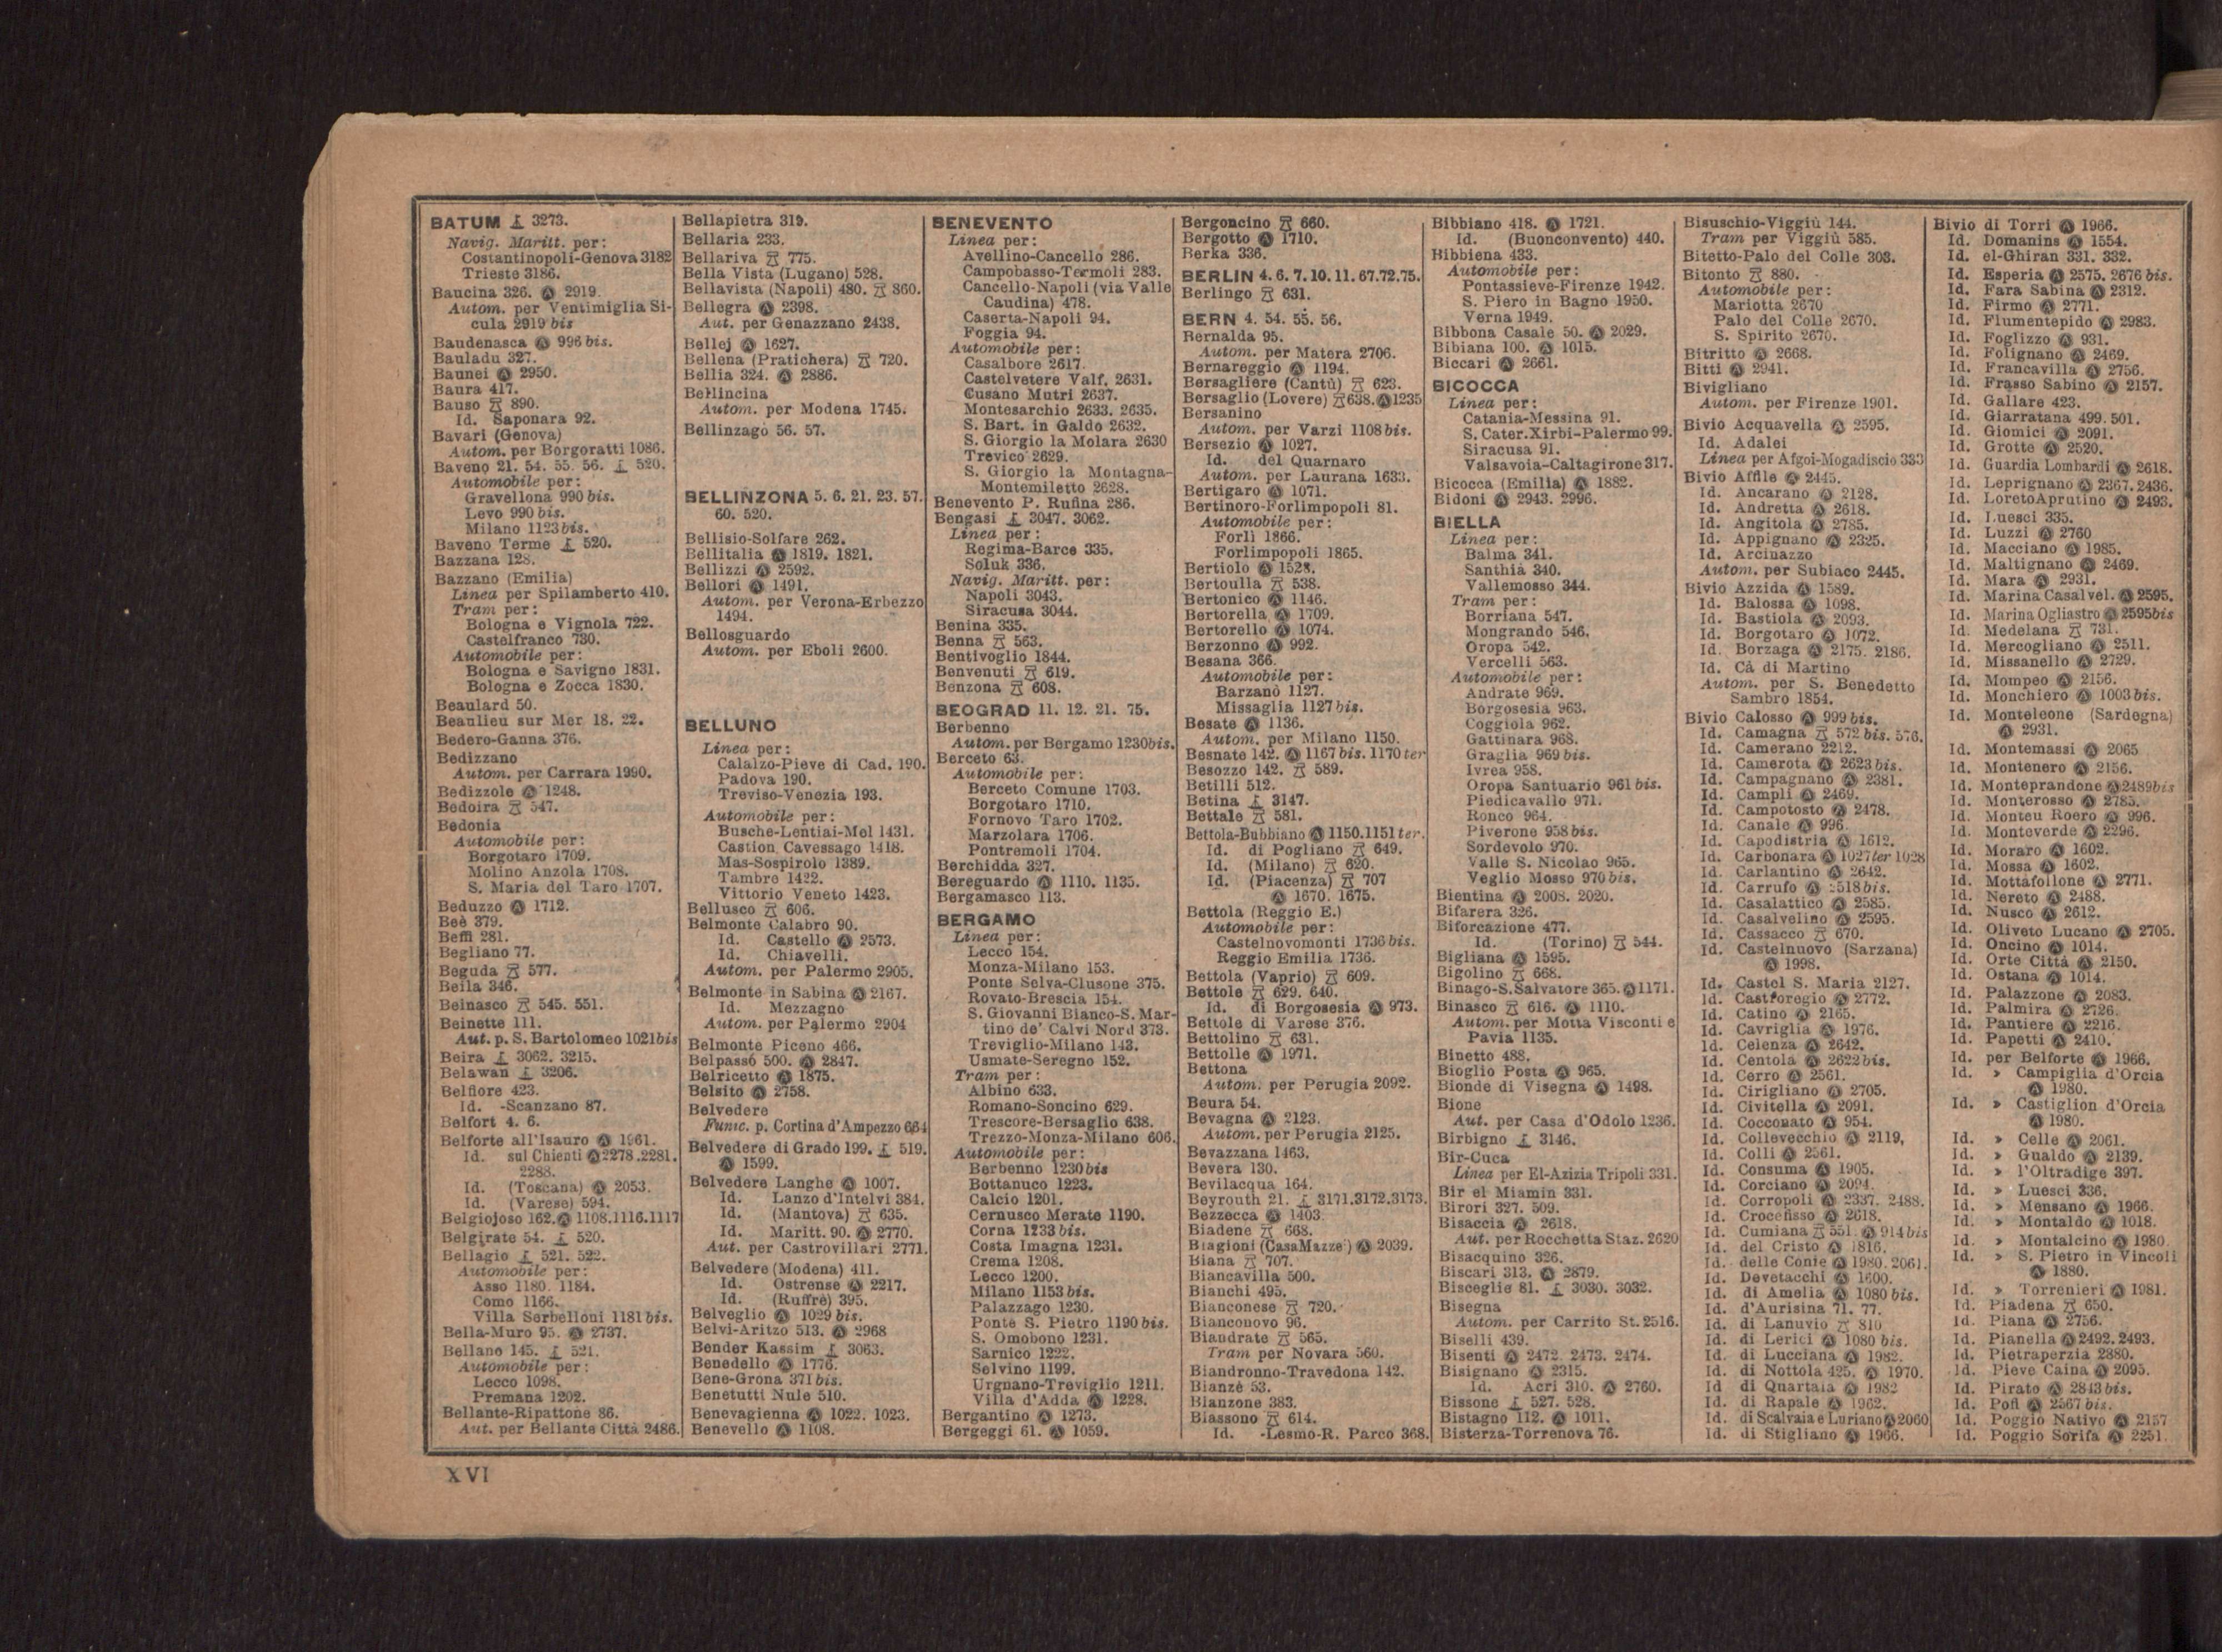 BATUM 3273.
Navig. Maritt. per:
Costantinopoli-Genova 3182
Trieste 3186.
Baucina 326. Ⓐ 2919.
Autom. per Ventimiglia Si-
cula 2919 bis
Baudenasca Ⓐ 996 bis.
Bauladu 327.
Baunei Ⓐ 2950.
Baura 417.
Bauso 890.
Id. Saponara 92.
Bavari (Genova)
Autom. per Borgoratti 1086.
Baveno 21. 54. 55. 56. 520.
Automobile per:
Gravellona 990 bis.
Levo 990 bis.
Milano 1123 bis.
Baveno Terme 520.
Bazzana 128.
Bazzano (Emilia)
Linea per Spilamberto 410.
Tram per:
Bologna e Vignola 722.
Castelfranco 730.
Automobile per:
Bologna e Savigno 1831.
Bologna e Zocca 1830.
Beaulard 50.
Beaulieu sur Mer 18. 22.
Bedero-Ganna 376.
Bedizzano
Autom. per Carrara 1990.
Bedizzole Ⓐ 1248.
Bedoira 547.
Bedonia
Automobile per:
Borgotaro 1709.
Molino Anzola 1708.
S. Maria del Taro 1707.
Beduzzo Ⓐ 1712.
Beè 379.
Beffi 281.
Begliano 77.
Beguda 577.
Beila 346.
Beinasco 545. 551.
Beinette 111.
Aut. p. S. Bartolomeo 1021 bis
Beira 3062. 3215.
Belawan 3206.
Belfiore 423.
Id. -Scanzano 87.
Belfort 4. 6.
Belforte all'Isauro Ⓐ 1961.
Id. sul Chienti Ⓐ 2278. 2281.
2288.
Id. (Toscana) Ⓐ 2053.
Id. (Varese) 594.
Belgiojoso 162. Ⓐ 1108. 1116. 1117
Belgirate 54. 520.
Bellagio 521. 522.
Automobile per:
Asso 1180. 1184.
Como 1166.
Villa Serbelloni 1181 bis.
Bella-Muro 95. Ⓐ 2737.
Bellano 145. 521.
Automobile per:
Lecco 1098.
Premana 1202.
Bellante-Ripattone 86.
Aut. per Bellante Città 2486.
Bellapietra 319.
Bellaria 233.
Bellariva 775.
Bella Vista (Lugano) 528.
Bellavista (Napoli) 480. 860.
Bellegra Ⓐ 2398.
Aut. per Genazzano 2438.
Bellej Ⓐ 1627.
Bellena (Pratichera) 720.
Bellia 324. Ⓐ 2886.
Bellincina
Autom. per Modena 1745.
Bellinzago 56. 57.
BELLINZONA 5. 6. 21. 23. 57.
60. 520.
Bellisio-Solfare 262.
Bellitalia Ⓐ 1819. 1821.
Bellizzi Ⓐ 2592.
Bellori Ⓐ 1491.
Autom. per Verona-Erbezzo
1494.
Bellosguardo
Autom. per Eboli 2600.
BELLUNO
Linea per:
Calalzo-Pieve di Cad. 190.
Padova 190.
Treviso-Venezia 193.
Automobile per:
Busche-Lentiai-Mel 1431.
Castion Cavessago 1418.
Mas-Sospirolo 1389.
Tambre 1422.
Vittorio Veneto 1423.
Bellusco 606.
Belmonte Calabro 90.
Id. Castello Ⓐ 2573.
Id. Chiavelli.
Autom. per Palermo 2905.
Belmonte in Sabina Ⓐ 2167.
Id. Mezzagno
Autom. per Palermo 2904
Belmonte Piceno 466.
Belpassó 500. Ⓐ 2847.
Belricetto Ⓐ 1875.
Belsito Ⓐ 2758.
Belvedere
Func. p. Cortina d'Ampezzo 664
Belvedere di Grado 199. 519.
Ⓐ 1599.
Belvedere Langhe Ⓐ 1007.
Id. Lanzo d'Intelvi 384.
Id. (Mantova) 635.
Id. Maritt. 90. Ⓐ 2770.
Aut. per Castrovillari 2771.
Belvedere (Modena) 411.
Id. Ostrense Ⓐ 2217.
Id. (Ruffrè) 395.
Belveglio Ⓐ 1029 bis.
Belvi-Aritzo 513. Ⓐ 2968
Bender Kassim 3063.
Benedello Ⓐ 1776.
Bene-Grona 371 bis.
Benetutti Nule 510.
Benevagienna Ⓐ 1022. 1023.
Benevello Ⓐ 1108.
BENEVENTO
Linea per:
Avellino-Cancello 286.
Campobasso-Termoli 283.
Cancello-Napoli (via Valle
Caudina) 478.
Caserta-Napoli 94.
Foggia 94.
Automobile per:
Casalbore 2617.
Castelvetere Valf. 2631.
Cusano Mutri 2637.
Montesarchio 2633. 2635.
S. Bart. in Galdo 2632.
S. Giorgio la Molara 2630
Trevico 2629.
S. Giorgio la Montagna-
Montemiletto 2628.
Benevento P. Rufina 286.
Bengasi 3047. 3062.
Linea per:
Regima-Barce 335.
Soluk 336.
Navig. Maritt. per:
Napoli 3043.
Siracusa 3044.
Benina 335.
Benna 563.
Bentivoglio 1844.
Benvenuti 619.
Benzona 608.
BEOGRAD 11. 12. 21. 75.
Berbenno
Autom. per Bergamo 1230 bis.
Berceto 63.
Automobile per:
Berceto Comune 1703.
Borgotaro 1710.
Fornovo Taro 1702.
Marzolara 1706.
Pontremoli 1704.
Berchidda 327.
Bereguardo Ⓐ 1110. 1135.
Bergamasco 113.
BERGAMO
Linea per:
Lecco 154.
Monza-Milano 153.
Ponte Selva-Clusone 375.
Rovato-Brescia 154.
S. Giovanni Bianco-S. Mar-
tino de' Calvi Nord 373.
Treviglio-Milano 143.
Usmate-Seregno 152.
Tram per:
Albino 633.
Romano-Soncino 629.
Trescore-Bersaglio 638.
Trezzo-Monza-Milano 606.
Automobile per:
Berbenno 1230 bis
Bottanuco 1223.
Calcio 1201.
Cernusco Merate 1190.
Corna 1233 bis.
Costa Imagna 1231.
Crema 1208.
Lecco 1200.
Milano 1153 bis.
Palazzago 1230.
Ponte S. Pietro 1190 bis.
S. Omobono 1231.
Sarnico 1222.
Selvino 1199.
Urgnano-Treviglio 1211.
Villa d'Adda Ⓐ 1228.
Bergantino Ⓐ 1273.
Bergeggi 61. Ⓐ 1059.
Bergoncino 660.
Bergotto Ⓐ 1710.
Berka 336.
BERLIN 4. 6. 7. 10. 11. 67. 72. 75.
Berlingo 631.
BERN 4. 54. 55. 56.
Bernalda 95.
Autom. per Matera 2706.
Bernareggio Ⓐ 1194.
Bersagliere (Cantù) 623.
Bersaglio (Lovere) 638. Ⓐ 1235
Bersanino
Autom. per Varzi 1108 bis.
Bersezio Ⓐ 1027.
Id. del Quarnaro
Autom. per Laurana 1633.
Bertigaro Ⓐ 1071.
Bertinoro-Forlimpopoli 81.
Automobile per:
Forlì 1866.
Forlimpopoli 1865.
Bertiolo Ⓐ 1528.
Bertoulla 538.
Bertonico Ⓐ 1146.
Bertorella Ⓐ 1709.
Bertorello Ⓐ 1074.
Berzonno Ⓐ 992.
Besana 366.
Automobile per:
Barzanò 1127.
Missaglia 1127 bis.
Besate Ⓐ 1136.
Autom. per Milano 1150.
Besnate 142. Ⓐ 1167 bis. 1170 ter
Besozzo 142. 589.
Betilli 512.
Betina 3147.
Bettale 581.
Bettola-Bubbiano Ⓐ 1150. 1151 ter.
Id. di Pogliano 649.
Id. (Milano) 620.
Id. (Piacenza) 707
Ⓐ 1670. 1675.
Bettola (Reggio E.)
Automobile per:
Castelnovomonti 1736 bis.
Reggio Emilia 1736.
Bettola (Vaprio) 609.
Bettole 629. 640.
Id. di Borgosesia Ⓐ 973.
Bettole di Varese 376.
Bettolino 631.
Bettolle Ⓐ 1971.
Bettona
Autom. per Perugia 2092.
Beura 54.
Bevagna Ⓐ 2123.
Autom. per Perugia 2125.
Bevazzana 1463.
Bevera 130.
Bevilacqua 164.
Beyrouth 21. 3171. 3172. 3173.
Bezzecca Ⓐ 1403.
Biadene 668.
Biagioni (Casa Mazze') Ⓐ 2039.
Biana 707.
Biancavilla 500.
Bianchi 495.
Bianconese 720.
Bianconovo 96.
Biandrate 565.
Tram per Novara 560.
Biandronno-Travedona 142.
Bianzè 53.
Bianzone 383.
Biassono 614.
Id. -Lesmo-R. Parco 368.
Bibbiano 418. Ⓐ 1721.
Id. (Buonconvento) 440.
Bibbiena 433.
Automobile per:
Pontassieve-Firenze 1942.
S. Piero in Bagno 1950.
Verna 1949.
Bibbona Casale 50. Ⓐ 2029.
Bibiana 100. Ⓐ 1015.
Biccari Ⓐ 2661.
BICOCCA
Linea per:
Catania-Messina 91.
S. Cater. Xirbi-Palermo 99.
Siracusa 91.
Valsavoia-Caltagirone 317.
Bicocca (Emilia) Ⓐ 1882.
Bidoni Ⓐ 2943. 2996.
BIELLA
Linea per:
Balma 341.
Santhià 340.
Vallemosso 344.
Tram per:
Borriana 547.
Mongrando 546.
Oropa 542.
Vercelli 563.
Automobile per:
Andrate 969.
Borgosesia 963.
Coggiola 962.
Gattinara 968.
Graglia 969 bis.
Ivrea 958.
Oropa Santuario 961 bis.
Piedicavallo 971.
Ronco 964.
Piverone 958 bis.
Sordevolo 970.
Valle S. Nicolao 965.
Veglio Mosso 970 bis.
Bientina Ⓐ 2008. 2020.
Bifarera 326.
Biforcazione 477.
Id. (Torino) 544.
Bigliana Ⓐ 1595.
Bigolino 668.
Binago-S. Salvatore 365. Ⓐ 1171.
Binasco 616. Ⓐ 1110.
Autom. per Motta Visconti e
Pavia 1135.
Binetto 488.
Bioglio Posta Ⓐ 965.
Bionde di Visegna Ⓐ 1498.
Bione
Aut. per Casa d'Odolo 1236.
Birbigno 3146.
Bir-Cuca
Linea per El-Azizia Tripoli 331.
Bir el Miamin 331.
Birori 327. 509.
Bisaccia Ⓐ 2618.
Aut. per Rocchetta Staz. 2620
Bisacquino 326.
Biscari 313. Ⓐ 2879.
Bisceglie 81. 3030. 3032.
Bisegna
Autom. per Carrito St. 2516.
Biselli 439.
Bisenti Ⓐ 2472. 2473. 2474.
Bisignano Ⓐ 2315.
Id. Acri 310. Ⓐ 2760.
Bissone 527. 528.
Bistagno 112. Ⓐ 1011.
Bisterza-Torrenova 76.
Bisuschio-Viggiù 144.
Tram per Viggiù 585.
Bitetto-Palo del Colle 303.
Bitonto 880.
Automobile per:
Mariotta 2670
Palo del Colle 2670.
S. Spirito 2670.
Bitritto Ⓐ 2668.
Bitti Ⓐ 2941.
Bivigliano
Autom. per Firenze 1901.
Bivio Acquavella Ⓐ 2595.
Id. Adalei
Linea per Afgoi-Mogadiscio 333
Bivio Affile Ⓐ 2445.
Id. Ancarano Ⓐ 2128.
Id. Andretta Ⓐ 2618.
Id. Angitola Ⓐ 2785.
Id. Appignano Ⓐ 2325.
Id. Arcinazzo
Autom. per Subiaco 2445.
Bivio Azzida Ⓐ 1589.
Id. Balossa Ⓐ 1098.
Id. Bastiola Ⓐ 2093.
Id. Borgotaro Ⓐ 1072.
Id. Borzaga Ⓐ 2175. 2186.
Id. Cà di Martino
Autom. per S. Benedetto
Sambro 1854.
Bivio Calosso Ⓐ 999 bis.
Id. Camagna 572 bis. 576.
Id. Camerano 2212.
Id. Camerota Ⓐ 2623 bis.
Id. Campagnano Ⓐ 2381.
Id. Campli Ⓐ 2469.
Id. Campotosto Ⓐ 2478.
Id. Canale Ⓐ 996.
Id. Capodistria Ⓐ 1612.
Id. Carbonara Ⓐ 1027 ter 1028
Id. Carlantino Ⓐ 2642.
Id. Carrufo Ⓐ 2518 bis.
Id. Casalattico Ⓐ 2585.
Id. Casalvelino Ⓐ 2595.
Id. Cassacco 670.
Id. Castelnuovo (Sarzana)
Ⓐ 1998.
Id. Castel S. Maria 2127.
Id. Castroregio Ⓐ 2772.
Id. Catino Ⓐ 2165.
Id. Cavriglia Ⓐ 1976.
Id. Celenza Ⓐ 2642.
Id. Centola Ⓐ 2622 bis.
Id. Cerro Ⓐ 2561.
Id. Cirigliano Ⓐ 2705.
Id. Civitella Ⓐ 2091.
Id. Cocconato Ⓐ 954.
Id. Collevecchio Ⓐ 2119,
Id. Colli Ⓐ 2561.
Id. Consuma Ⓐ 1905.
Id. Corciano Ⓐ 2094.
Id. Corropoli Ⓐ 2337. 2488.
Id. Crocefisso Ⓐ 2618.
Id. Cumiana 551. Ⓐ 914 bis
Id. del Cristo Ⓐ 1816.
Id. delle Conie Ⓐ 1980. 2061.
Id. Devetacchi Ⓐ 1600.
Id. di Amelia Ⓐ 1080 bis.
Id. d'Aurisina 71. 77.
Id. di Lanuvio 810
Id. di Lerici Ⓐ 1080 bis.
Id. di Lucciana Ⓐ 1982.
Id. di Nottola 425. Ⓐ 1970.
Id di Quartaia Ⓐ 1982
Id. di Rapale Ⓐ 1962.
Id. di Scalvaia e Luriano Ⓐ 2060
Id. di Stigliano Ⓐ 1966.
Bivio di Torri Ⓐ 1966.
Id. Domanins Ⓐ 1554.
Id. el-Ghiran 331. 332.
Id. Esperia Ⓐ 2575. 2676 bis.
Id. Fara Sabina Ⓐ 2312.
Id. Firmo Ⓐ 2771.
Id. Flumentepido Ⓐ 2983.
Id. Foglizzo Ⓐ 931.
Id. Folignano Ⓐ 2469.
Id. Francavilla Ⓐ 2756.
Id. Frasso Sabino Ⓐ 2157.
Id. Gallare 423.
Id. Giarratana 499. 501.
Id. Giomici Ⓐ 2091.
Id. Grotte Ⓐ 2520.
Id. Guardia Lombardi Ⓐ 2618.
Id. Leprignano Ⓐ 2367. 2436.
Id. Loreto Aprutino Ⓐ 2493.
Id. Luesci 335.
Id. Luzzi Ⓐ 2760
Id. Macciano Ⓐ 1985.
Id. Maltignano Ⓐ 2469.
Id. Mara Ⓐ 2931.
Id. Marina Casalvel. Ⓐ 2595.
Id. Marina Ogliastro Ⓐ 2595 bis
Id. Medelana 731.
Id. Mercogliano Ⓐ 2511.
Id. Missanello Ⓐ 2729.
Id. Mompeo Ⓐ 2156.
Id. Monchiero Ⓐ 1003 bis.
Id. Monteleone (Sardegna)
Ⓐ 2931.
Id. Montemassi Ⓐ 2065
Id. Montenero Ⓐ 2156.
Id. Monteprandone Ⓐ 2489 bis
Id. Monterosso Ⓐ 2785.
Id. Monteu Roero Ⓐ 996.
Id. Monteverde Ⓐ 2296.
Id. Moraro Ⓐ 1602.
Id. Mossa Ⓐ 1602.
Id. Mottafollone Ⓐ 2771.
Id. Nereto Ⓐ 2488.
Id. Nusco Ⓐ 2612.
Id. Oliveto Lucano Ⓐ 2705.
Id. Oncino Ⓐ 1014.
Id. Orte Città Ⓐ 2150.
Id. Ostana Ⓐ 1014.
Id. Palazzone Ⓐ 2083.
Id. Palmira Ⓐ 2726.
Id. Pantiere Ⓐ 2216.
Id. Papetti Ⓐ 2410.
Id. per Belforte Ⓐ 1966.
Id. » Campiglia d'Orcia
Ⓐ 1980.
Id. » Castiglion d'Orcia
Ⓐ 1980.
Id. » Celle Ⓐ 2061.
Id. » Gualdo Ⓐ 2139.
Id. » l'Oltradige 397.
Id. » Luesci 336.
Id. » Mensano Ⓐ 1966.
Id. » Montaldo Ⓐ 1018.
Id. » Montalcino Ⓐ 1980.
Id. » S. Pietro in Vincoli
Ⓐ 1880.
Id. » Torrenieri Ⓐ 1981.
Id. Piadena 650.
Id. Piana Ⓐ 2756.
Id. Pianella Ⓐ 2492. 2493.
Id. Pietraperzia 2880.
Id. Pieve Caina Ⓐ 2095.
Id. Pirato Ⓐ 2843 bis.
Id. Pofi Ⓐ 2567 bis.
Id. Poggio Nativo Ⓐ 2157
Id. Poggio Sorifa Ⓐ 2251.
XVI